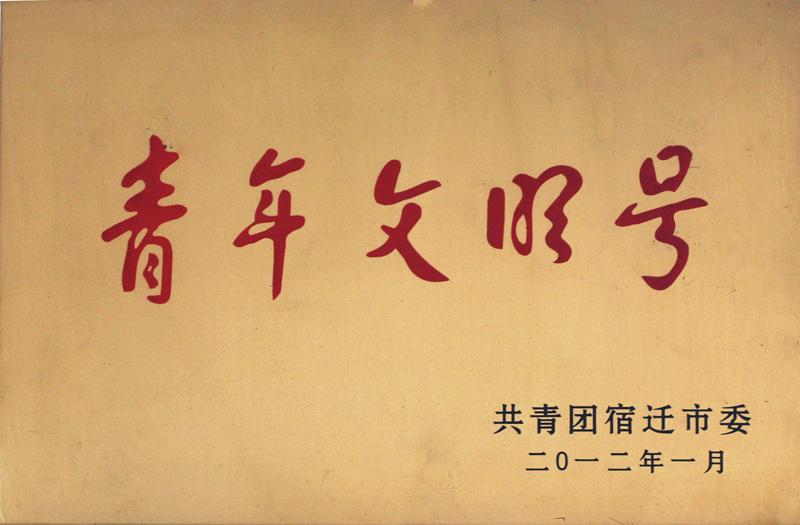 青年文明号
共青团宿迁市委
二0一二年一月